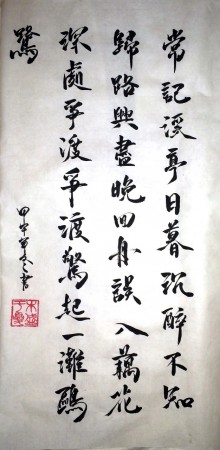 常記溪亭日暮沉醉不知
歸路興盡晚回舟誤入藕花
深處爭渡爭渡驚起一灘鷗
鷺